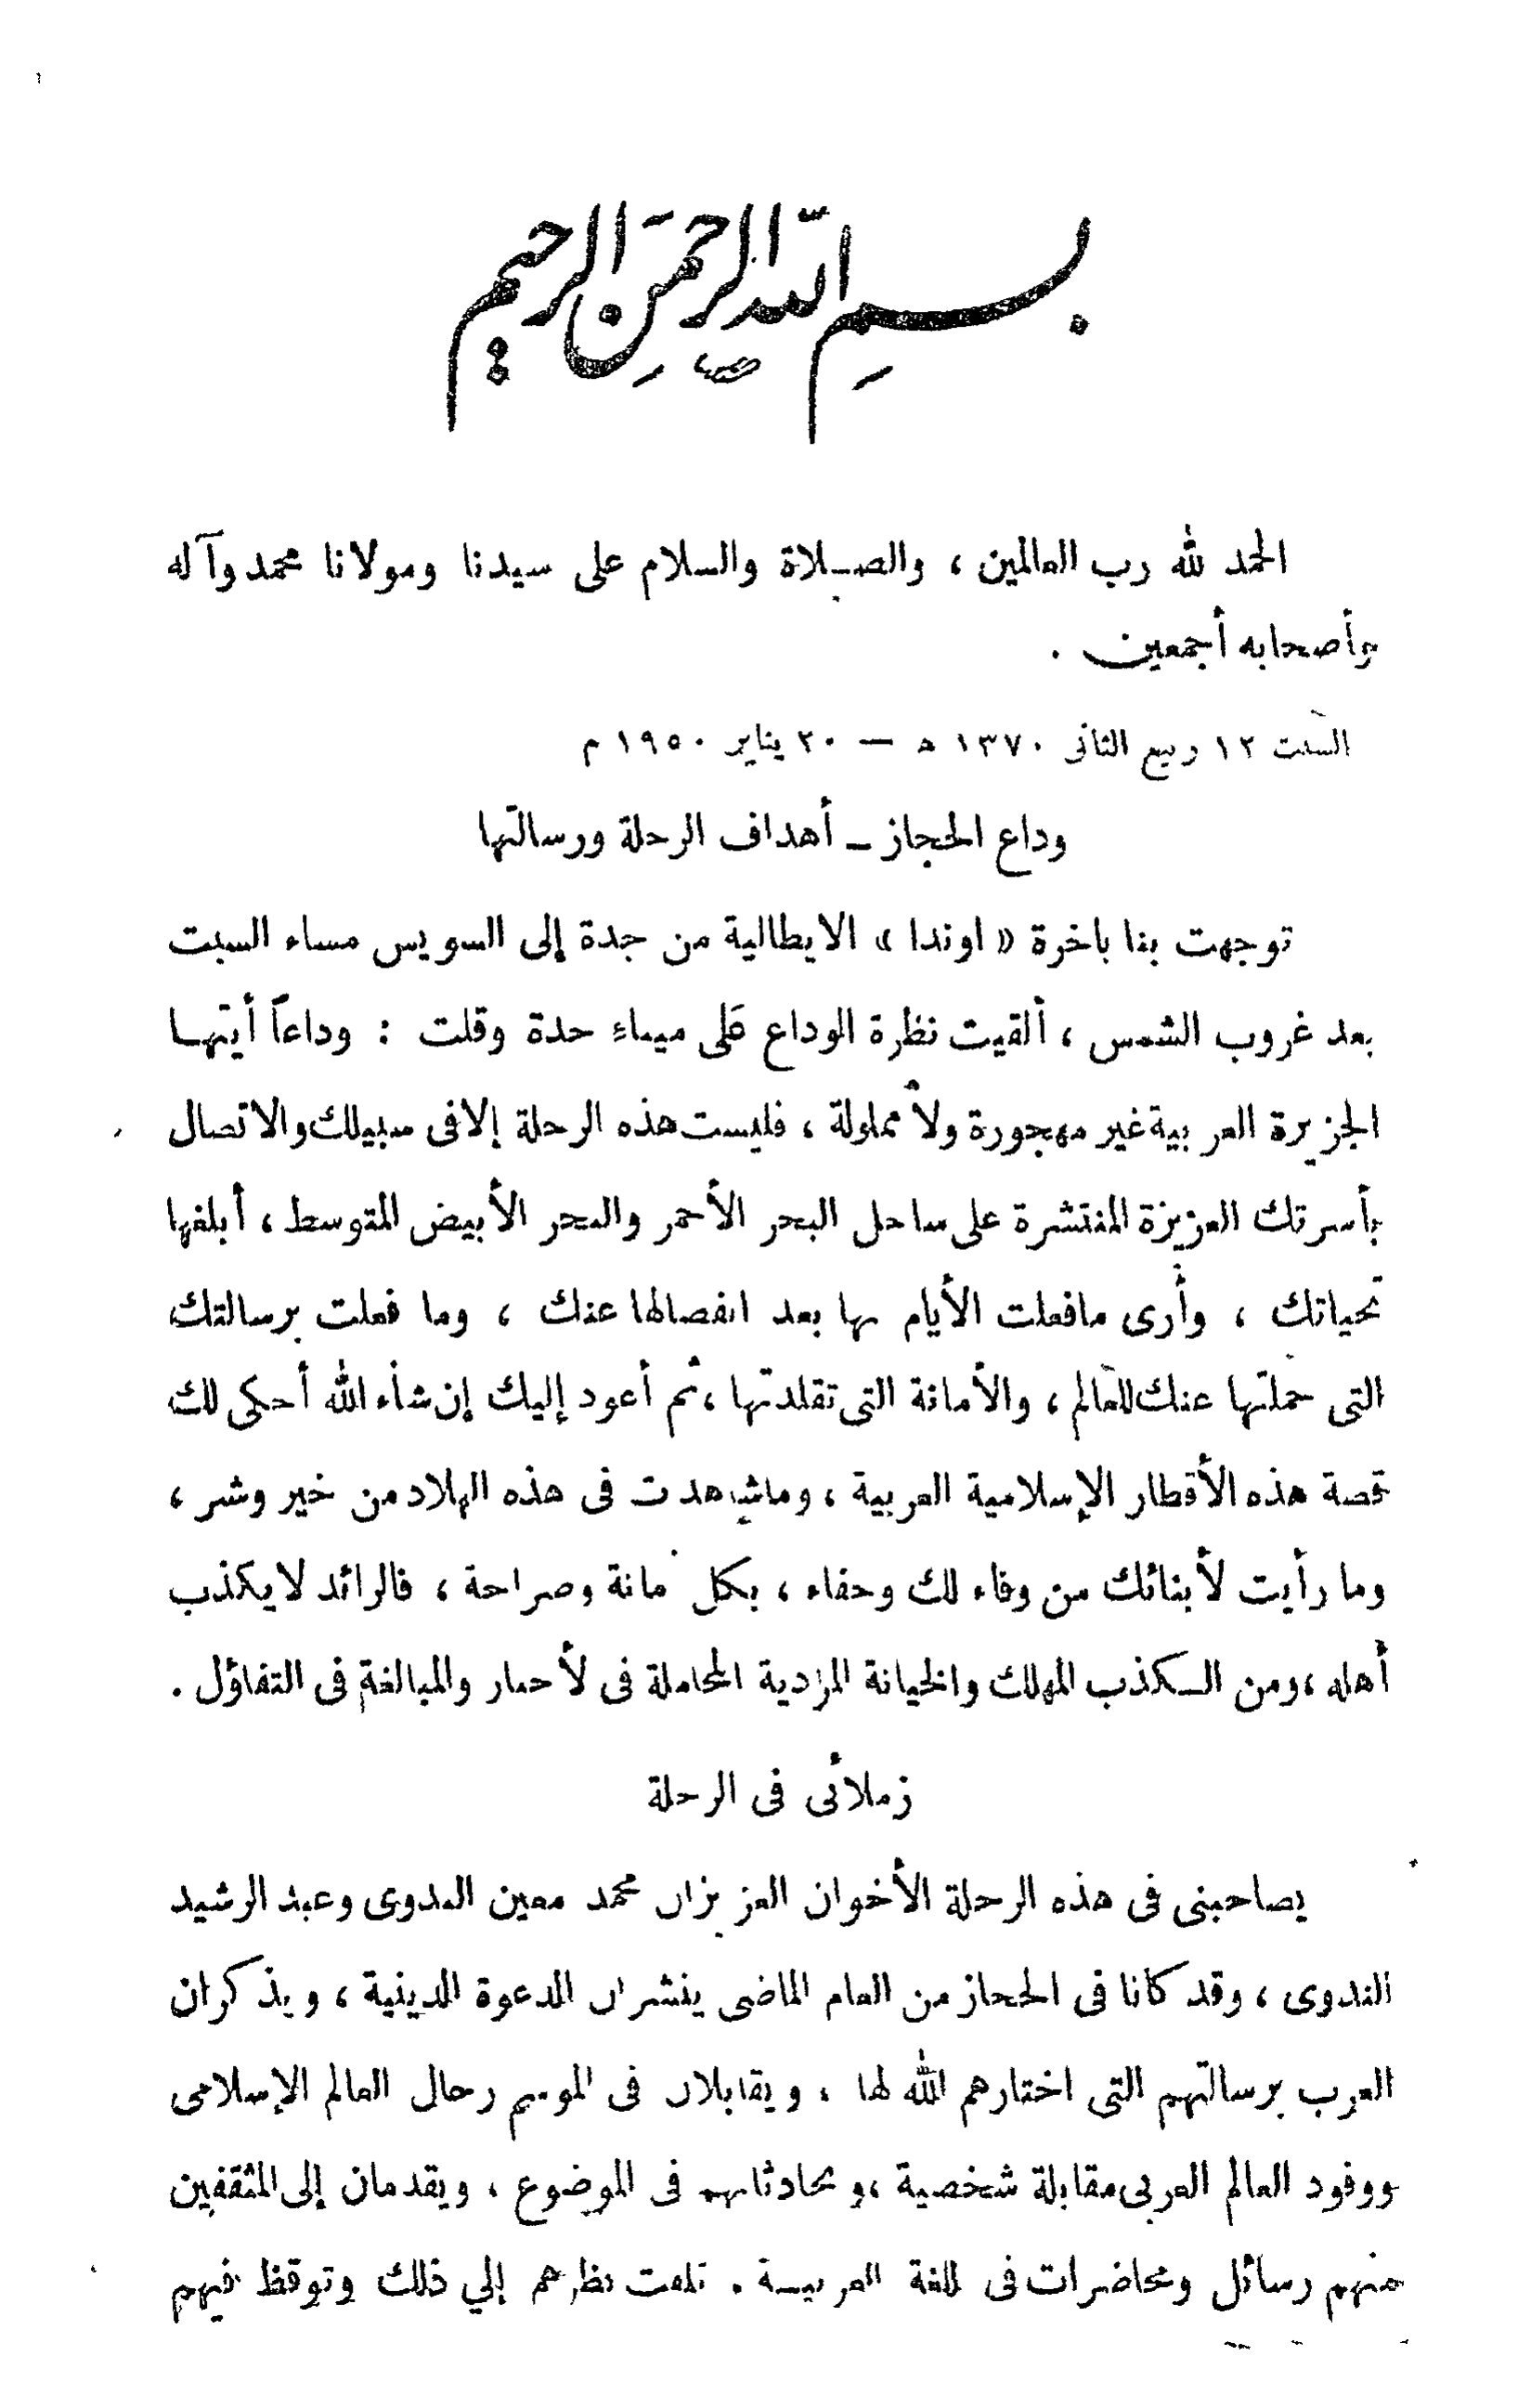 بسم الله الرحمن الرحيم
الحمد لله رب العالمين ، والصلاة والسلام على سيدنا ومولانا محمد وآله
وأصحابه أجمعين .
السبت ١٢ ربيع الثانى ١٣٧٠ ھ — ٢٠ يناير ١٩٥٠ م
وداع الحجاز – أهداف الرحلة ورسالتها
توجهت بنا باخرة « اوندا » الايطالية من جدة إلى السويس مساء السبت
بعد غروب الشمس ، ألقيت نظرة الوداع على ميناء جدة وقلت : وداعاً أيتها
الجزيرة العربية غير مهجورة ولا مملولة ، فليست هذه الرحلة إلا فى سبيلك والاتصال
بأسرتك العزيزة المنتشرة على ساحل البحر الأحمر والبحر الأبيض المتوسط ، أبلغها
تحياتك ، وأرى مافعلت الأيام بها بعد انفصالها عنك ، وما فعلت برسالتك
التى حملتها عنك للعالم ، والأمانة التى تقلدتها ، ثم أعود إليك إن شاء الله أحكى لك
قصة هذه الأقطار الإسلامية العربية ، وماشاهدت فى هذه البلاد من خير وشر ،
وما رأيت لأبنائك من وفاء لك وجفاء ، بكل أمانة وصراحة ، فالرائد لا يكذب
أهله ، ومن الكذب المهلك والخيانة المردية المجاملة فى لأخبار والمبالغة فى التفاؤل .
زملائى فى الرحلة
يصاحبنى فى هذه الرحلة الأخوان العزيزان محمد معين الندوى وعبد الرشيد
الندوى ، وقد كانا فى الحجاز من العام الماضى ينشران الدعوة الدينية ، ويذكران
العرب برسالتهم التى اختارهم الله لها ، ويقابلان فى الموسم رجال العالم الإسلامى
ووفود العالم العربى مقابلة شخصية ، ويحادثانهم فى الموضوع ، ويقدمان إلى المثقفين
منهم رسائل ومحاضرات فى اللغة العربيـة . تلفت نظرهم إلي ذلك وتوقظ فيهم